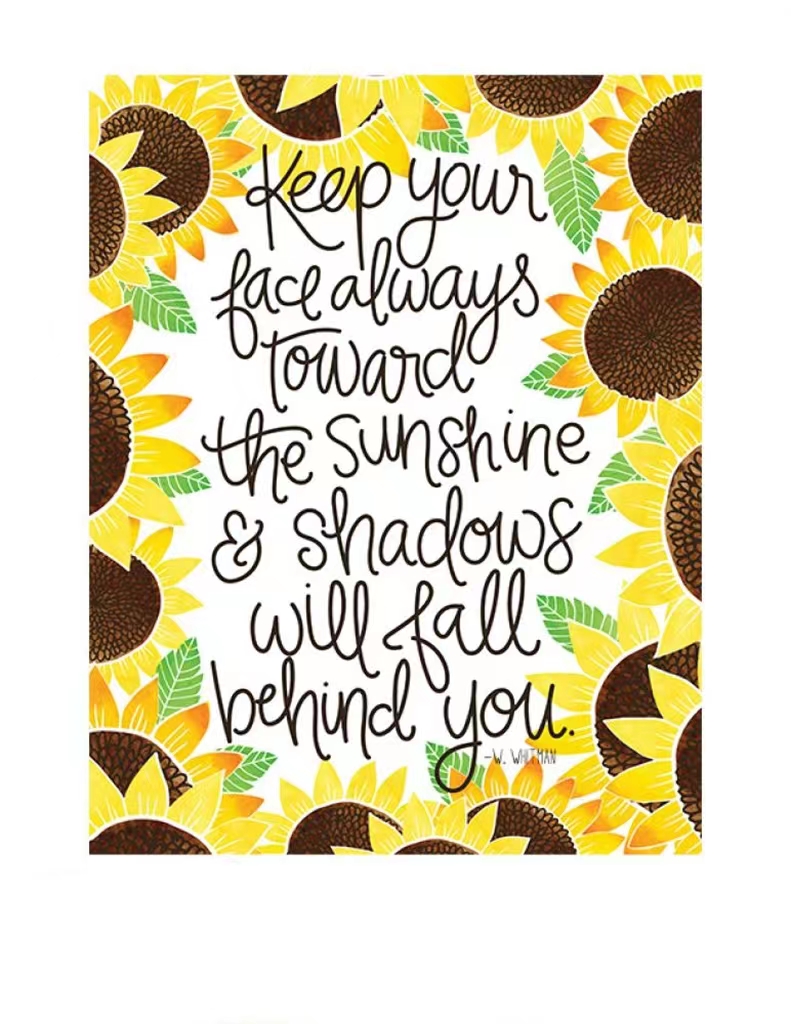 Keep your
face always
toward
the sunshine
& shadows
will fall
behind you.
-W. WHITMAN